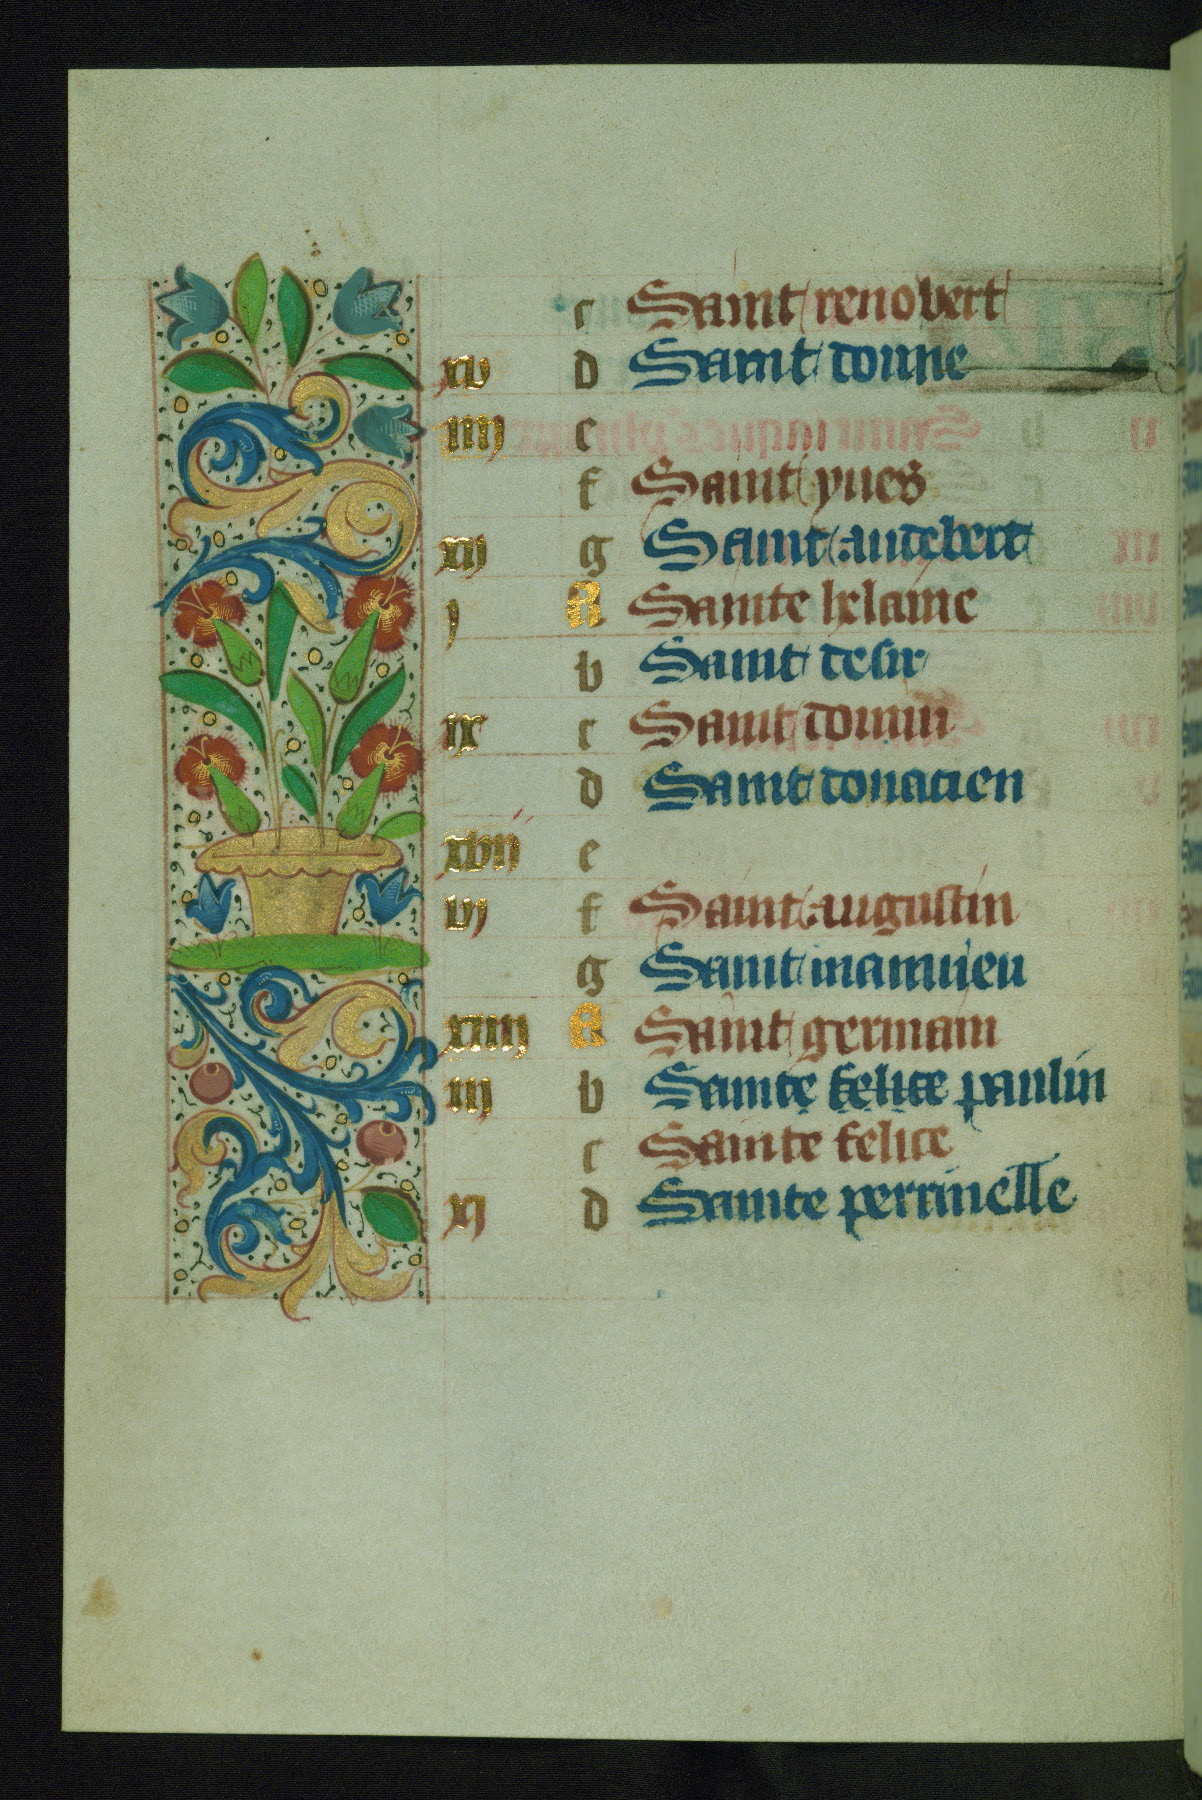 c Saint renobert
xv d Saint donne
iiij e
f Saint yues
xij g Saint audebert
j A Sainte helaine
b Saint desir
ix c Saint donin
d Saint donacien
xvij e
vj f Saint augustin
g Saint manuieu
xiiij A Saint germain
iij b Sainte felice paulin
c Sainte felice
xj d Sainte perrinelle